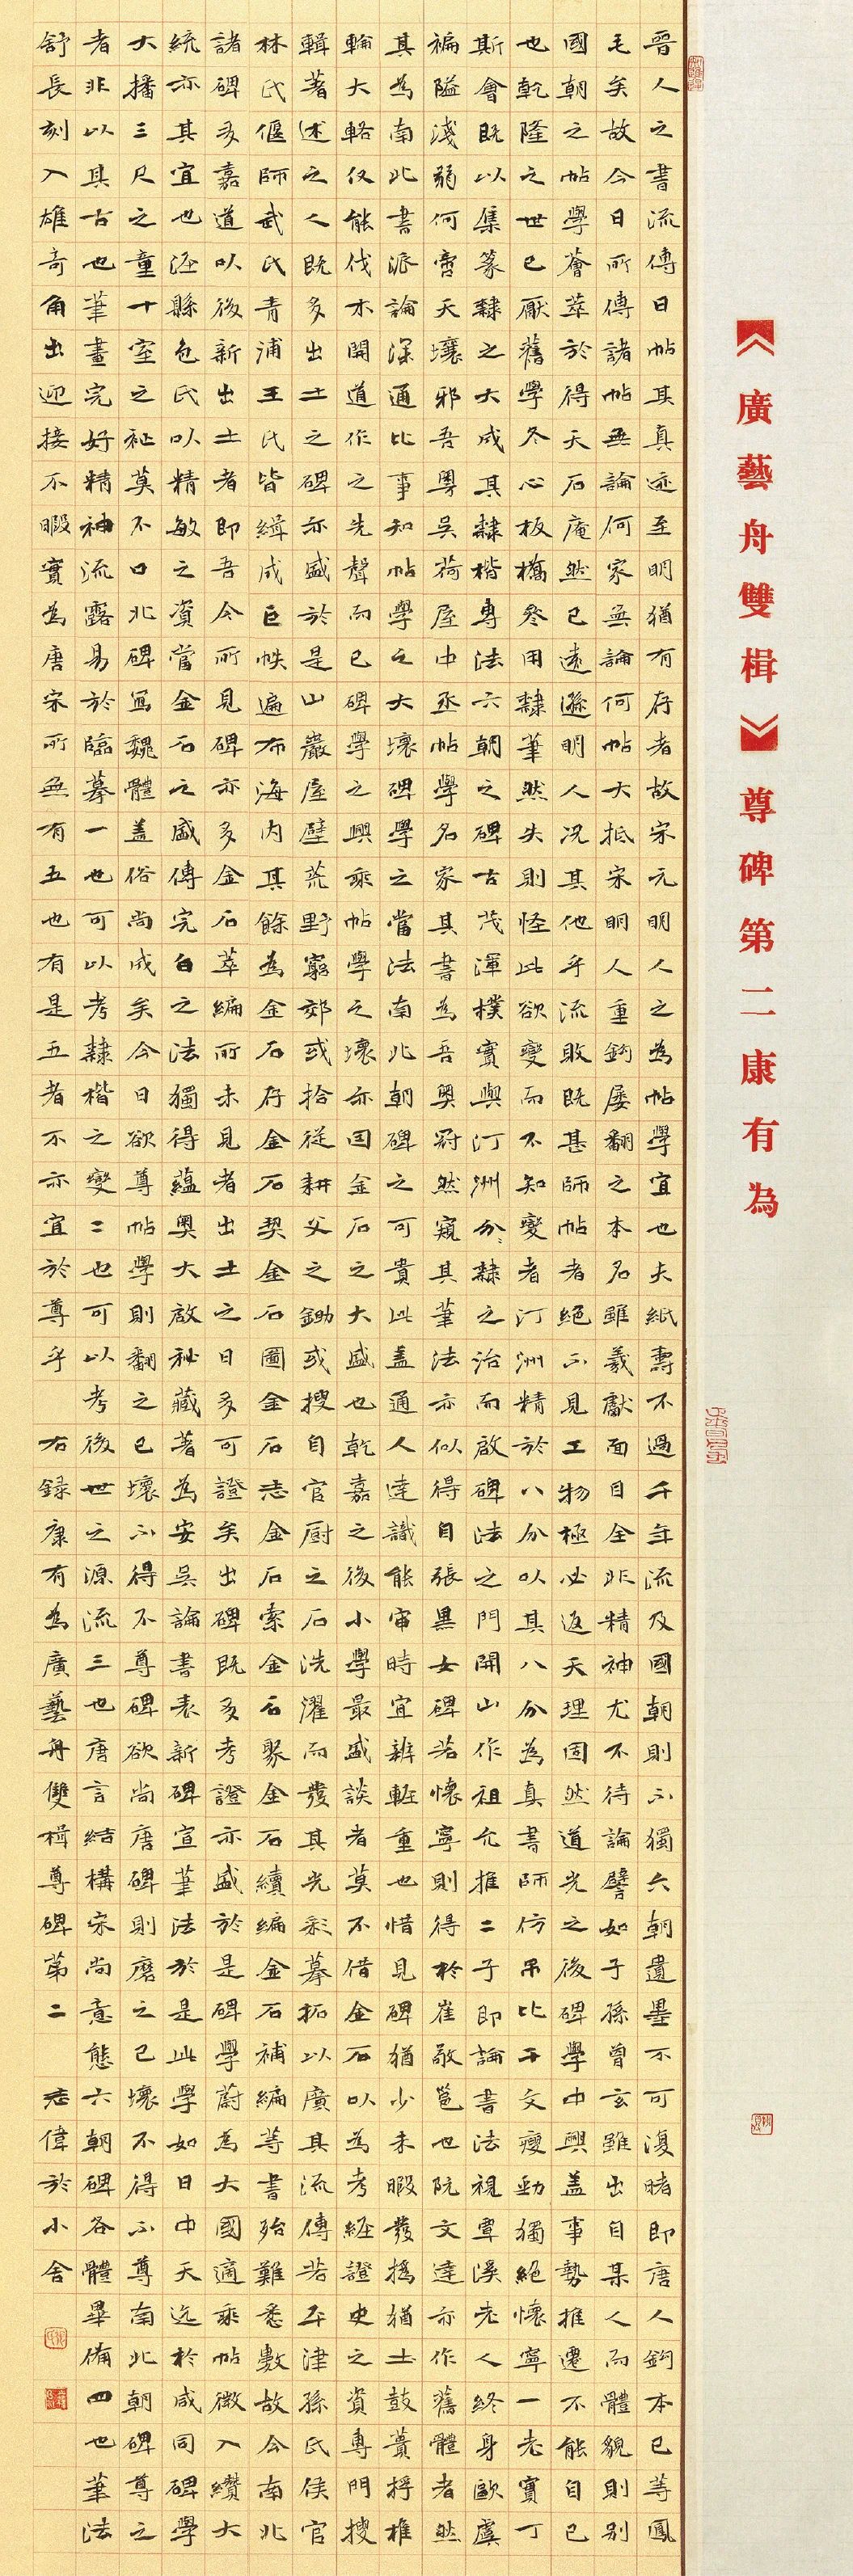 《廣藝舟雙楫》尊碑第二康有為
晉人之書流傳曰帖其真迹至明猶有存者故宋元明人之為帖學宜也夫紙壽不過千年流及國朝則不獨六朝遺墨不可復睹即唐人鈎本已等鳳
毛矣故今日所傳諸帖無論何家無論何帖大抵宋明人重鈎屢翻之本名雖羲獻面目全非精神尤不待論譬如子孫曾玄雖出自某人而體貌則別
國朝之帖學薈萃於得天石庵然已遠遜明人況其他乎流敗既甚師帖者絕不見工物極必返天理固然道光之後碑學中興蓋事勢推遷不能自已
也乾隆之世已厭舊學冬心板橋參用隸筆然失則怪此欲變而不知變者汀洲精於八分以其八分為真書師仿吊比干文瘦勁獨絕懷寧一老實丁
斯會既以集篆隸之大成其隸楷專法六朝之碑古茂渾樸實與汀洲分隸之治而啟碑法之門開山作祖允推二子即論書法視覃溪老人終身歐虞
褊隘淺弱何啻天壤邪吾粵吳荷屋中丞帖學名家其書為吾粵冠然窺其筆法亦似得自張黑女碑若懷寧則得於崔敬邕也阮文達亦作舊體者然
其為南北書派論深通此事知帖學之大壞碑學之當法南北朝碑之可貴此蓋通人達識能審時宜辨輊重也惜見碑猶少未暇發撝猶土鼓蕢桴椎
輪大輅仅能伐木開道作之先聲而已碑學之興乘帖學之壞亦因金石之大盛也乾嘉之後小學最盛談者莫不借金石以為考經證史之資專門搜
輯著述之人既多出土之碑亦盛於是山巖屋壁荒野窮郊或拾從耕父之鋤或搜自官厨之石洗濯而發其光彩摹拓以廣其流傳若平津孫氏侯官
林氏偃師武氏青浦王氏皆緝成巨帙遍布海內其餘為金石存金石契金石圖金石志金石索金石聚金石續編金石補編等書殆難悉數故今南北
諸碑多嘉道以後新出土者即吾今所見碑亦多金石萃編所未見者出土之日多可證矣出碑既多考證亦盛於是碑學蔚為大國適乘帖微入纘大
統亦其宜也涇縣包氏以精敏之資當金石之盛傳完白之法獨得蘊奧大啟秘藏著為安吳論書表新碑宣筆法於是此學如日中天迄於咸同碑學
大播三尺之童十室之社莫不口北碑寫魏體蓋俗尚成矣今日欲尊帖學則翻之已壞不得不尊碑欲尚唐碑則磨之已壞不得不尊南北朝碑尊之
者非以其古也筆畫完好精神流露易於臨摹一也可以考隸楷之變二也可以考後世之源流三也唐言結構宋尚意態六朝碑各體畢備四也筆法
舒長刻入雄奇角出迎接不暇實為唐宋所無有五也有是五者不亦宜於尊乎 右錄康有為廣藝舟雙楫尊碑第二 志偉於小舍